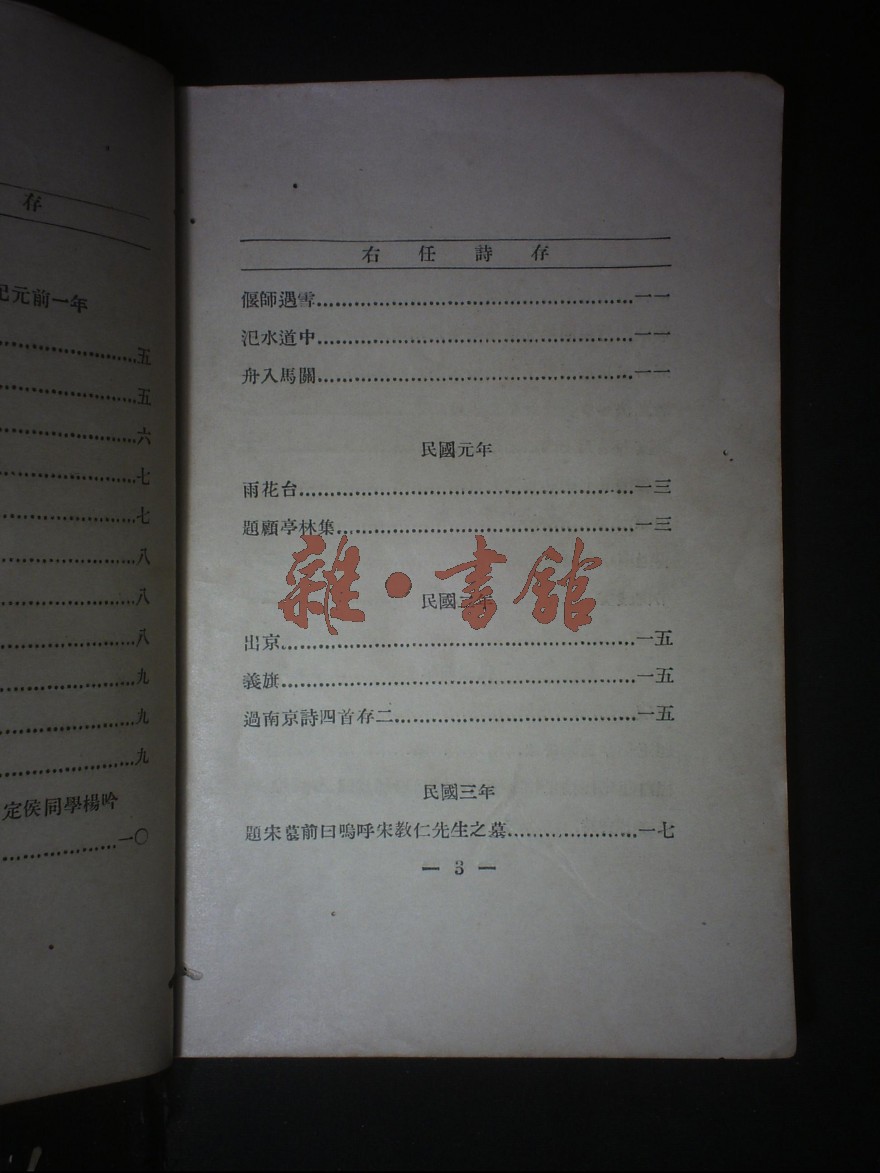 存
紀元前一年
五
五
六
七
七
八
八
八
九
九
九
定侯同學楊吟
一〇
右任詩存
偃師遇雪一一
汜水道中一一
舟入馬關一一
民國元年
雨花台一三
題顧亭林集一三
雜·書館
民國二年
出京一五
義旗一五
過南京詩四首存二一五
民國三年
題宋墓前曰嗚呼宋教仁先生之墓一七
— 3 —